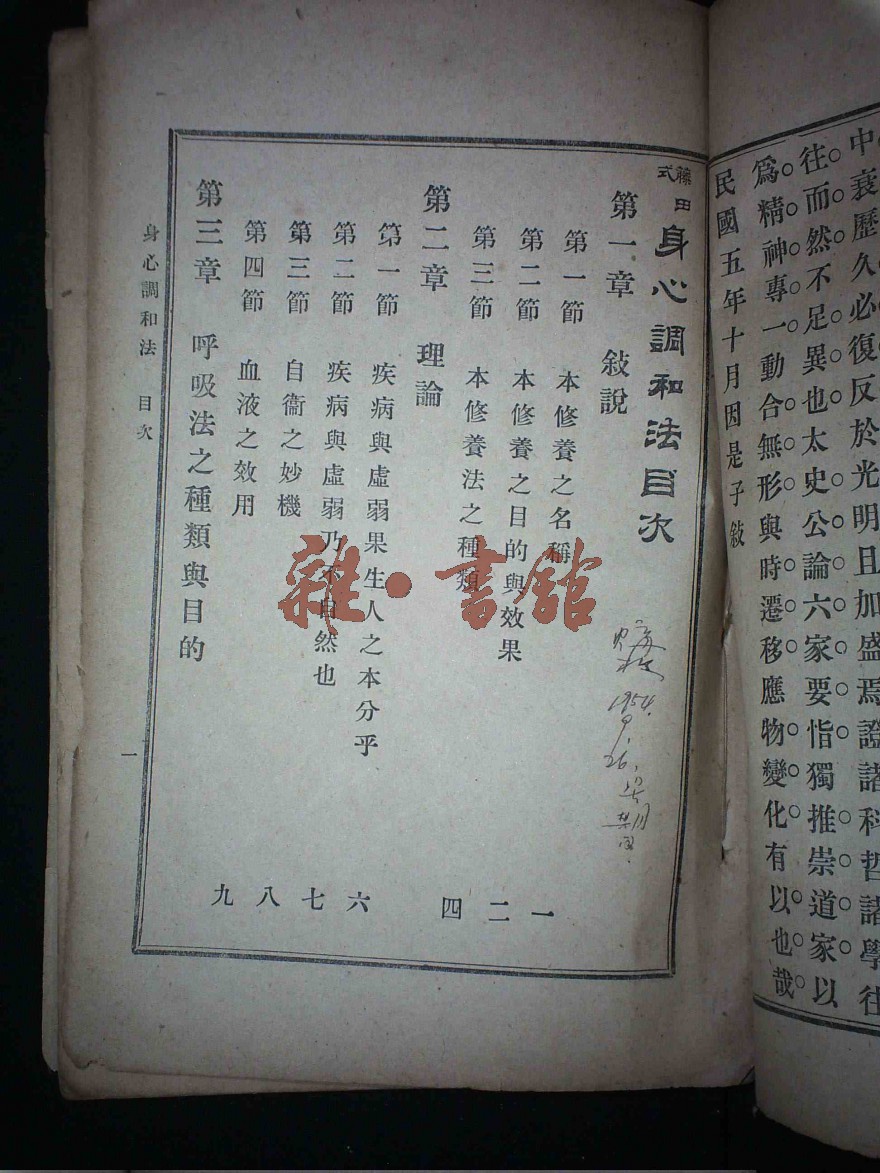 中衰歷久必復反於光明且加盛焉證諸科哲諸學往
往而然不足異也太史公論六家要恉獨推崇道家以
爲精神專一動合無形與時遷移應物變化有以也哉
民國五年十月因是子敍
藤田式 身心調和法目次
第一章 敍說
第一節 本修養之名稱 一
第二節 本修養之目的與效果 二
第三節 本修養法之種類 四
第二章 理論
第一節 疾病與虛弱果生人之本分乎 六
第二節 疾病與虛弱乃不自然也 七
第三節 自衞之妙機 八
第四節 血液之效用 九
第三章 呼吸法之種類與目的
身心調和法 目次
一
1954.
9.
26.
雜·書館